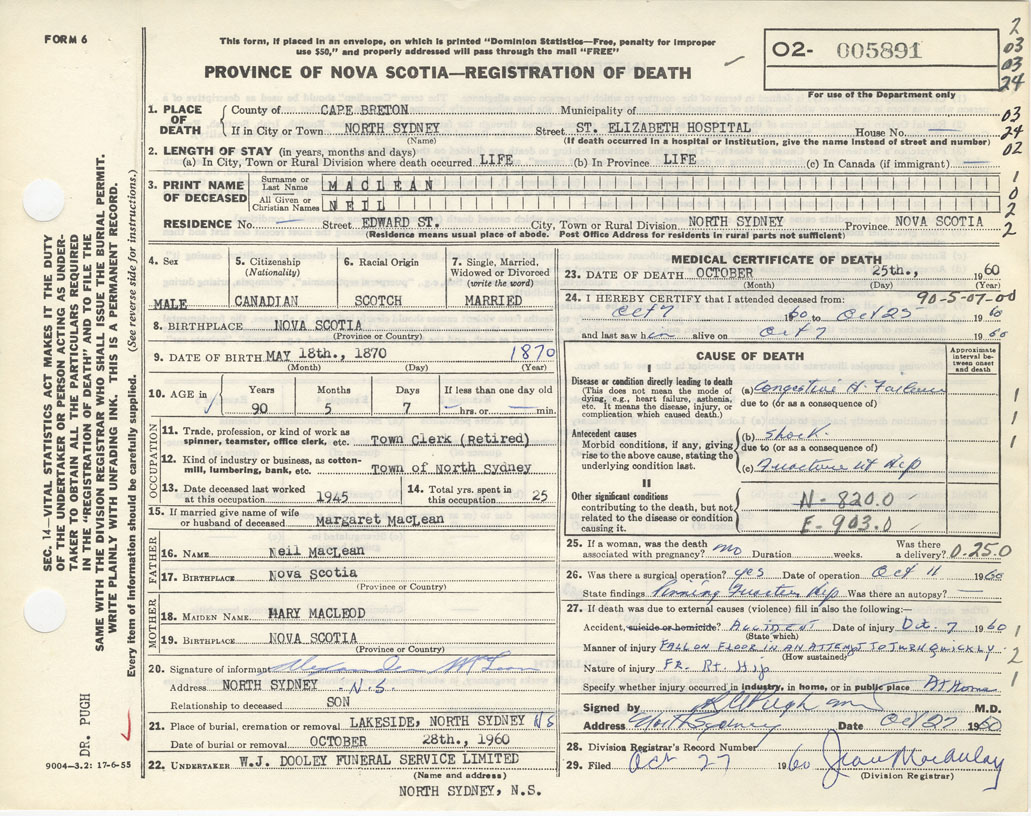 FORM 6
This form, if placed in an envelope, on which is printed "Dominion Statistics—Free, penalty for improper
use $50," and properly addressed will pass through the mail "FREE"
02- 005891
For use of the Department only
PROVINCE OF NOVA SCOTIA—REGISTRATION OF DEATH
2
03
03
24
03
24
02
1
0
2
2
1. PLACE OF DEATH
County of CAPE BRETON Municipality of
If in City or Town NORTH SYDNEY Street ST. ELIZABETH HOSPITAL House No. —
(Name) (If death occurred in a hospital or institution, give the name instead of street and number)
2. LENGTH OF STAY (in years, months and days)
(a) In City, Town or Rural Division where death occurred. LIFE (b) In Province LIFE (c) In Canada (if immigrant) —
3. PRINT NAME OF DECEASED
Surname or Last Name MACLEAN
All Given or Christian Names NEIL
RESIDENCE No. — Street EDWARD ST. City, Town or Rural Division NORTH SYDNEY Province NOVA SCOTIA
(Residence means usual place of abode. Post Office Address for residents in rural parts not sufficient)
4. Sex MALE
5. Citizenship (Nationality) CANADIAN
6. Racial Origin SCOTCH
7. Single, Married, Widowed or Divorced (write the word) MARRIED
8. BIRTHPLACE NOVA SCOTIA
(Province or Country)
9. DATE OF BIRTH MAY 18th., 1870 1870
(Month) (Day) (Year)
10. AGE in Years 90 Months 5 Days 7 If less than one day old —hrs. or —min.
OCCUPATION
11. Trade, profession, or kind of work as spinner, teamster, office clerk, etc. Town Clerk (Retired)
12. Kind of industry or business, as cotton-mill, lumbering, bank, etc. Town of North Sydney
13. Date deceased last worked at this occupation 1945
14. Total yrs. spent in this occupation 25
15. If married give name of wife or husband of deceased Margaret MacLean
FATHER
16. NAME Neil MacLean
17. BIRTHPLACE Nova Scotia
(Province or Country)
MOTHER
18. MAIDEN NAME MARY MACLEOD
19. BIRTHPLACE NOVA SCOTIA
(Province or Country)
20. Signature of informant
Address NORTH SYDNEY - N.S.
Relationship to deceased SON
21. Place of burial, cremation or removal LAKESIDE, NORTH SYDNEY NS
Date of burial or removal OCTOBER 28th., 1960
22. UNDERTAKER W.J. DOOLEY FUNERAL SERVICE LIMITED
(Name and address)
NORTH SYDNEY, N.S.
MEDICAL CERTIFICATE OF DEATH
23. DATE OF DEATH OCTOBER 25th., 1960
(Month) (Day)
24. I HEREBY CERTIFY that I attended deceased from: 90-5-07-00
Oct 7 1960 to Oct 25 1960
and last saw him alive on Oct 7 1960
CAUSE OF DEATH
Approximate interval between onset and death
I
Disease or condition directly leading to death
(This does not mean the mode of dying, e.g., heart failure, asthenia, etc. It means the disease, injury, or complication which caused death.)
(a) Congestive H. Failure
due to (or as a consequence of)
Antecedent causes
Morbid conditions, if any, giving rise to the above cause, stating the underlying condition last.
(b) Shock
due to (or as a consequence of)
(c) Fracture rt Hip
II
Other significant conditions
contributing to the death, but not related to the disease or condition causing it.
N-820.0
E-903.0
1
1
1
25. If a woman, was the death associated with pregnancy? no Duration weeks. Was there a delivery? 0-25.0
26. Was there a surgical operation? yes Date of operation Oct 11 1960
State findings Pinning Fracture Hip Was there an autopsy? —
27. If death was due to external causes (violence) fill in also the following:—
Accident, suicide or homicide? ACCIDENT Date of injury Oct. 7 1960
(State which)
Manner of injury FALL ON FLOOR IN AN ATTEMPT TO TURN QUICKLY
(How sustained)
Nature of injury FR. Rt. Hip
Specify whether injury occurred in industry, in home, or in public place At Home
1
2
1
Signed by M.D.
Address North Sydney Date Oct 27 1960
28. Division Registrar's Record Number
29. Filed Oct 27 1960 Jean Macaulay
(Division Registrar)
SEC. 14—VITAL STATISTICS ACT MAKES IT THE DUTY
OF THE UNDERTAKER OR PERSON ACTING AS UNDER-
TAKER TO OBTAIN ALL THE PARTICULARS REQUIRED
IN THE "REGISTRATION OF DEATH" AND TO FILE THE
SAME WITH THE DIVISION REGISTRAR WHO SHALL ISSUE THE BURIAL PERMIT.
WRITE PLAINLY WITH UNFADING INK. THIS IS A PERMANENT RECORD.
Every item of Information should be carefully supplied. (See reverse side for instructions.)
DR. PUGH
9004—3.2: 17-6-55